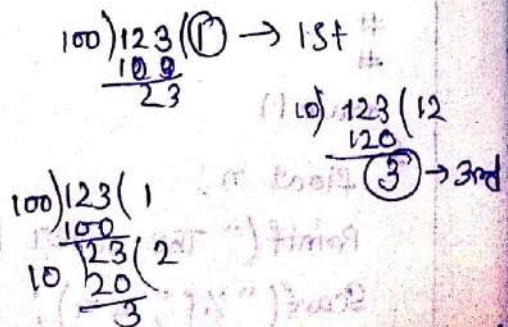 100)123(1 → 1st
100
23
10) 123 (12
120
3 → 3rd
100)123( 1
100
10 )23(2
20
3